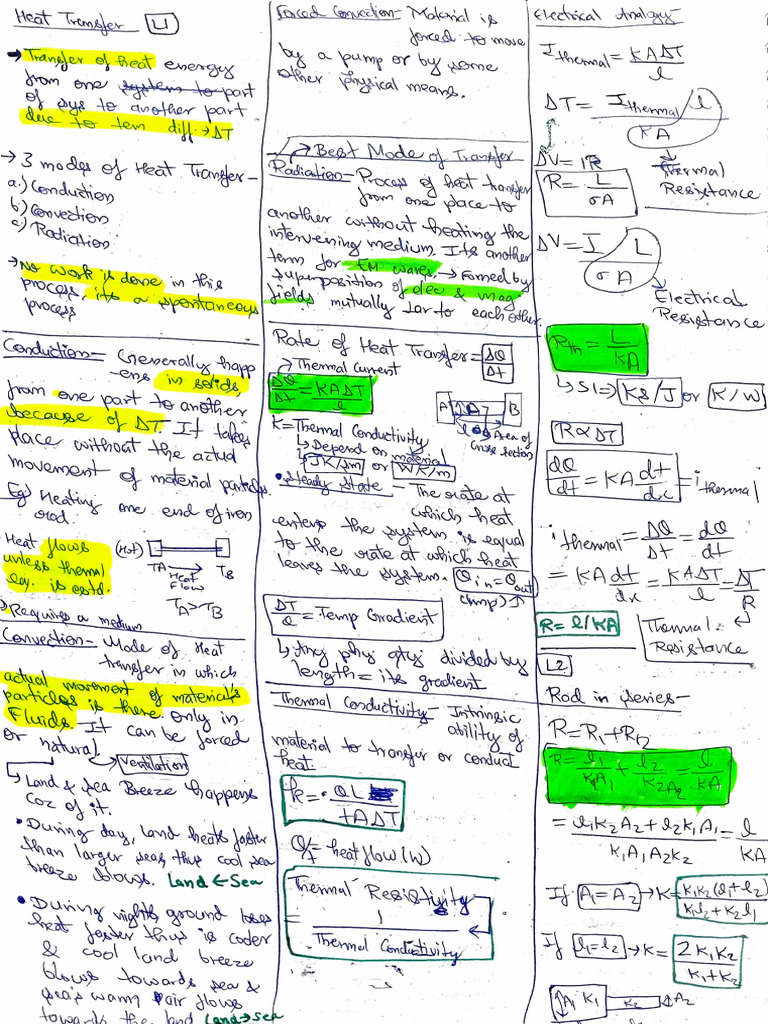 Heat Transfer L1
→ Transfer of heat energy
from one system to part
of sys to another part
due to tem diff. → ΔT
→ 3 modes of Heat Transfer-
a.) Conduction
b.) Convection
c.) Radiation
→ No work is done in this
process, its a spontaneous
process
Conduction- Generally happ
-ens in solids,
from one part to another
because of ΔT. It takes
place without the actual
movement of material particles.
Eg) Heating one end of iron
rod.
Heat flows
unless thermal
eq. is estd.
(Hot)
TA → TB
Heat
Flow
TA>TB
→ Requires a medium
Convection- Mode of Heat
transfer in which
actual movement of material's
particles is there only in
Fluids. It can be forced
or natural
Ventilation
Land & Sea Breeze happens
coz of it.
• During day, land heats faster
than larger seas, thus cool sea
breeze blows. Land ← Sea
• During nights, ground loses
heat faster thus is cooler
& cool land breeze
blows towards sea &
sea's warm air flows
towards the land Land → Sea
Forced Convection- Material is
forced to move
by a pump or by some
other physical means.
→ Best Mode of Transfer
Radiation- Process of heat transfer
from one place to
another without heating the
intervening medium. Its another
term for EM waves. → Formed by
superposition of elec & mag
fields mutually ⊥ar to each other.
Rate of Heat Transfer = ΔQ/Δt
→ Thermal current
ΔQ/Δt = KAΔT/l
A B
Area of
cross section
K=Thermal Conductivity
↳ Depend on material
↳ JK/sm or WK/m
• Steady State - The rate at
which heat
enters the system is equal
to the rate at which heat
leaves the system. Qin = Qout
(Imp)
ΔT/l = Temp Gradient
↳ Any phy qty divided by
length = its gradient
Thermal Conductivity- Intrinsic
ability of
material to transfer or conduct
heat.
k = QL/tAΔT
Q/t = heat flow (W)
Thermal Resistivity
= 1/Thermal Conductivity
Electrical Analogy
Ithermal = KAΔT/l
ΔT = Ithermal l/KA
Thermal
Resistance
ΔV = IR
R = L/σA
ΔV = I L/σA
Electrical
Resistance
Rth = L/KA
↳ SI ⇒ KS/J or K/W
R∝ΔT
dQ/dt = KA dt/dx = ithermal
ithermal = ΔQ/Δt = dQ/dt
= KA dt/dx = KAΔT/l = ΔT/R
R = l/KA
Thermal
Resistance
L2
Rod in Series-
R = R1 + R2
R = l1/K1A1 + l2/K2A2 = l/KA
= l1K2A2 + l2K1A1/K1A1A2K2 = l/KA
If A1 = A2 → K = K1K2(l1+l2)/K1l2+K2l1
If l1 = l2 → K = 2K1K2/K1+K2
A1 K1 K2 A2